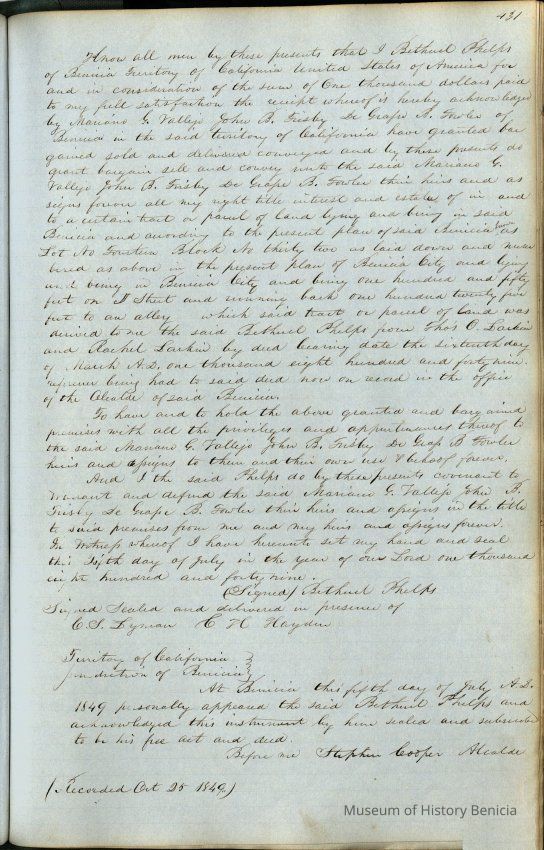 431
Know all men by these presents that I Bethuel Phelps
of Benicia Territory of California United States of America for
and in consideration of the sum of One thousand dollars paid
to my full satisfaction the receipt whereof is hereby acknowledged
by Mariano G. Vallejo John B. Frisby De Grape A. Fowler of
Benicia in the said territory of California have granted bar
gained sold and delivered conveyed and by these presents do
grant bargain sell and convey unto the said Mariano G.
Vallejo John B. Frisby De Grape B. Fowler their heirs and as
signs forever all my right title interest and estate of in and
to a certain tract or parcel of Land lying and being in said
Benicia and according to the present plan of said Benicia as
Lot No Fourteen Block No thirty two as laid down and num
bered as above in the present plan of Benicia City and lying
and being in Benicia City and being one hundred and fifty
feet on I Street and running back one hundred twenty five
feet to an alley which said tract or parcel of Land was
derived to me the said Bethuel Phelps from Thos O. Larkin
and Rachel Larkin by deed bearing date the sixteenth day
of March A.D. one thousand eight hundred and forty nine.
reference being had to said deed now on record in the office
of the Alcalde of said Benicia.
To have and to hold the above granted and bargained
premises with all the privileges and appurtenances thereof to
the said Mariano G. Vallejo John B. Frisby De Grap B Fowler
heirs and assigns to them and their own use & behoof forever.
And I the said Phelps do by these presents covenant to
warrant and defend the said Mariano G. Vallejo John B.
Frisby De Grape B. Fowler their heirs and assigns in the title
to said premises from me and my heirs and assigns forever.
In Witness whereof I have hereunto set my hand and seal
this fifth day of July in the year of our Lord one thousand
eight hundred and forty nine.
(Signed) Bethuel Phelps
Signed Sealed and delivered in presence of
C. S. Lyman C H Hayden
Territory of California }
Jurisdiction of Benicia }
At Benicia this fifth day of July A.D.
1849 personally appeared the said Bethuel Phelps and
acknowledged this instrument by him sealed and subscribed
to be his free act and deed.
Before me Stephen Cooper Alcalde
(Recorded Oct 25 1849)
Museum of History Benicia